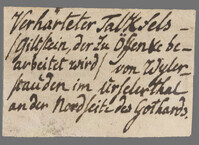 Verhärteter Talkfels -
/Giltstein, der zu Öfen be-
arbeitet wird/ - von Wyler-
stauden im Urselerthal
an der Nordseite des Gothards.